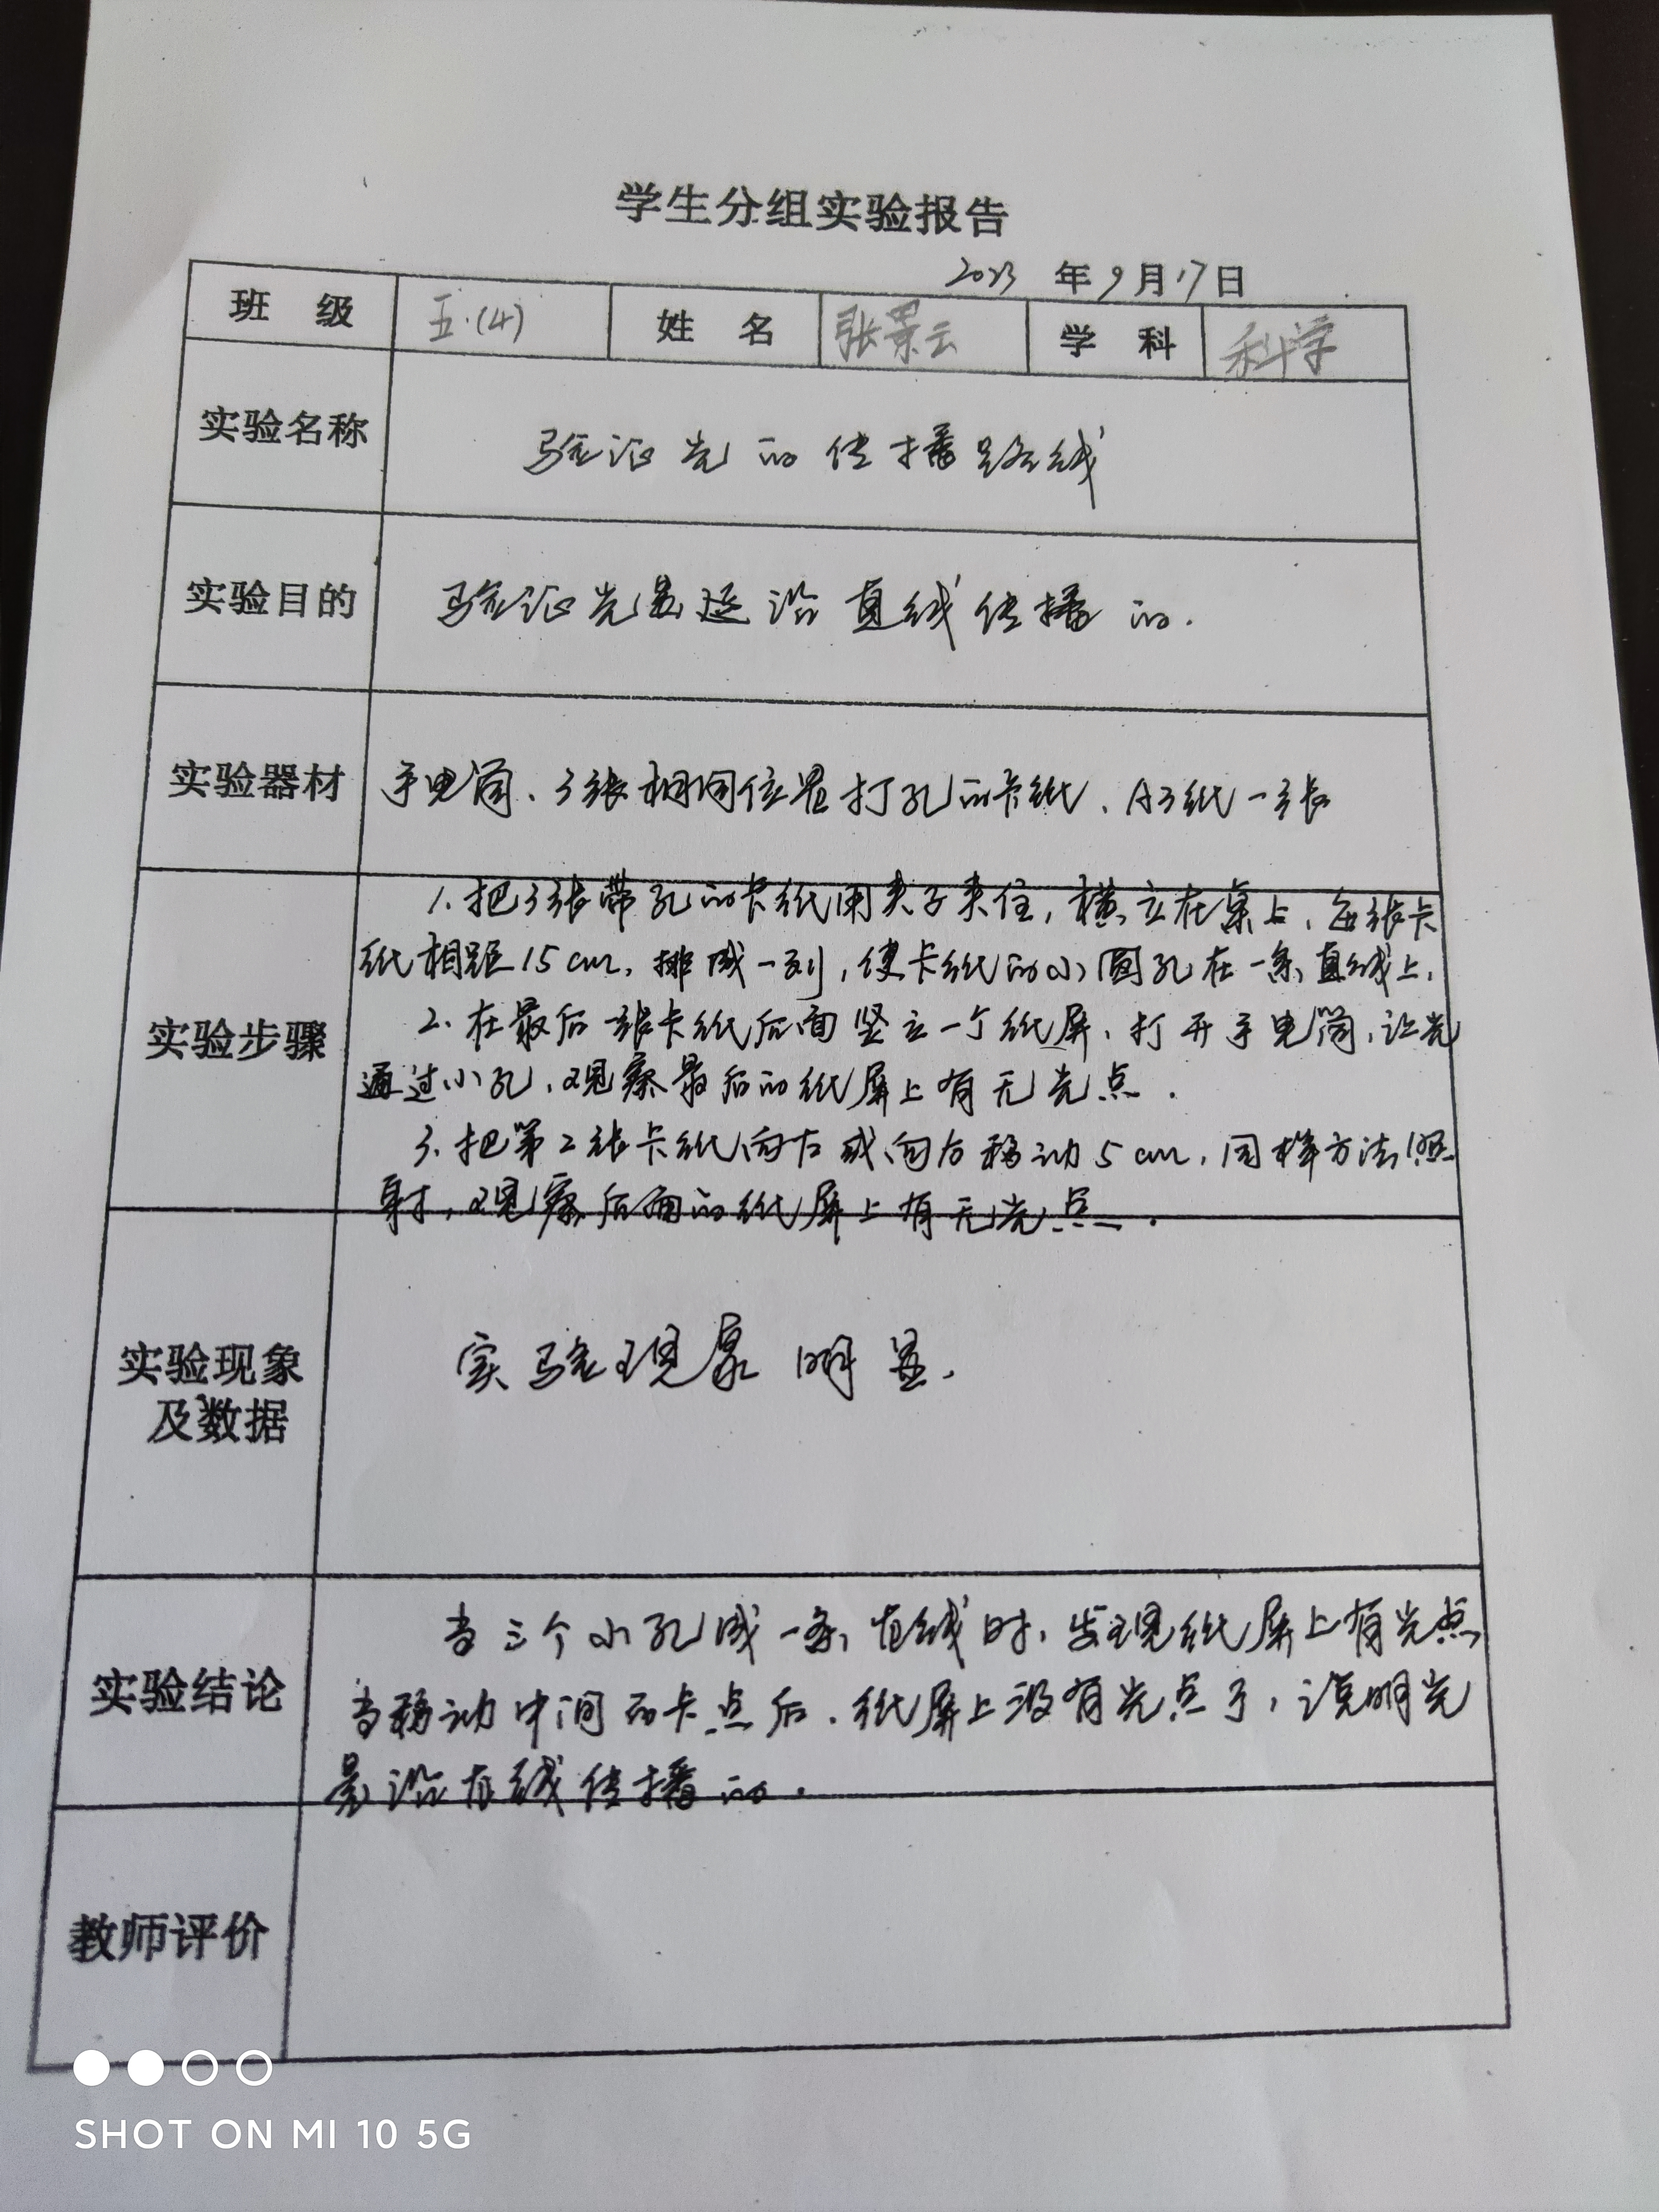 学生分组实验报告
2023 年 9 月 17 日
班 级 五.(4) 姓 名 张景云 学 科 科学
实验名称 验证光的传播路线
实验目的 验证光是延沿直线传播的.
实验器材 手电筒、3张相同位置打孔的卡纸、A3纸一张
1.把3张带孔的卡纸用夹子夹住,横立在桌上,每张卡
纸相距15cm,排成一列,使卡纸的小圆孔在一条直线上.
实验步骤 2.在最后一张卡纸后面竖立一个纸屏,打开手电筒,让光
通过小孔,观察最后的纸屏上有无光点.
3.把第2张卡纸向左或向右移动5cm,同样方法照
射,观察后面的纸屏上有无光点.
实验现象
及数据
实验现象明显.
当三个小孔成一条直线时,发现纸屏上有光点
实验结论 当移动中间的卡点后,纸屏上没有光点了,说明光
是沿直线传播的.
教师评价
SHOT ON MI 10 5G